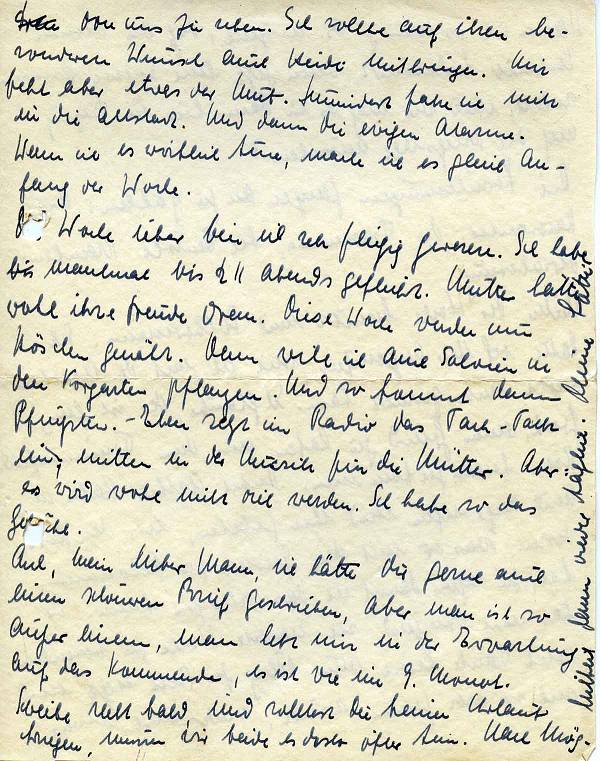 von uns zu üben. Ich sollte auf ihren be-
sonderen Wunsch auch Heidi mitbringen. Mir
fehlt aber etwas der Mut. Mindest fahre ich mit
in die Altstadt. Und dann die ewigen Alarme.
Wenn ich es wirklich tue, mache ich es gleich An-
fang der Woche.
Die Woche über bin ich sehr fleißig gewesen. Ich habe
bis manchmal bis ½ 11 abends geflickt. Mutter hätte
wohl ihre Freude dran. Diese Woche werden nun
Höschen genäht. Dann will ich auch Salvien in
den Vorgarten pflanzen. Und so kommt dann
Pfingsten. - Eben sagt im Radio das Tack-Tack
ein, mitten in der Musik für die Mütter. Aber:
es wird wohl nicht viel werden. Ich habe so das
Gefühl.
Ach, mein lieber Mann, ich hätte dir gerne auch
einen schönen Brief geschrieben, aber man ist so
außer einem, man lebt nur in der Erwartung
auf das Kommende, es ist wie im 9. Monat.
Schreibe recht bald, und solltest du keinen Urlaub
kriegen, müssen wir beide es doch öfter tun. Karl